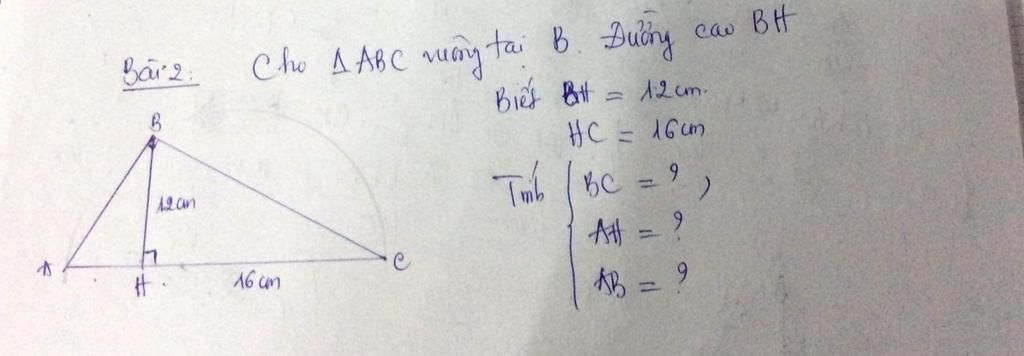 Bài 2: Cho Δ ABC vuông tại B. Đường cao BH
Biết BH = 12cm.
HC = 16cm
Tính BC = ? ,
AH = ?
AB = ?
B
12cm
A
H
16cm
C